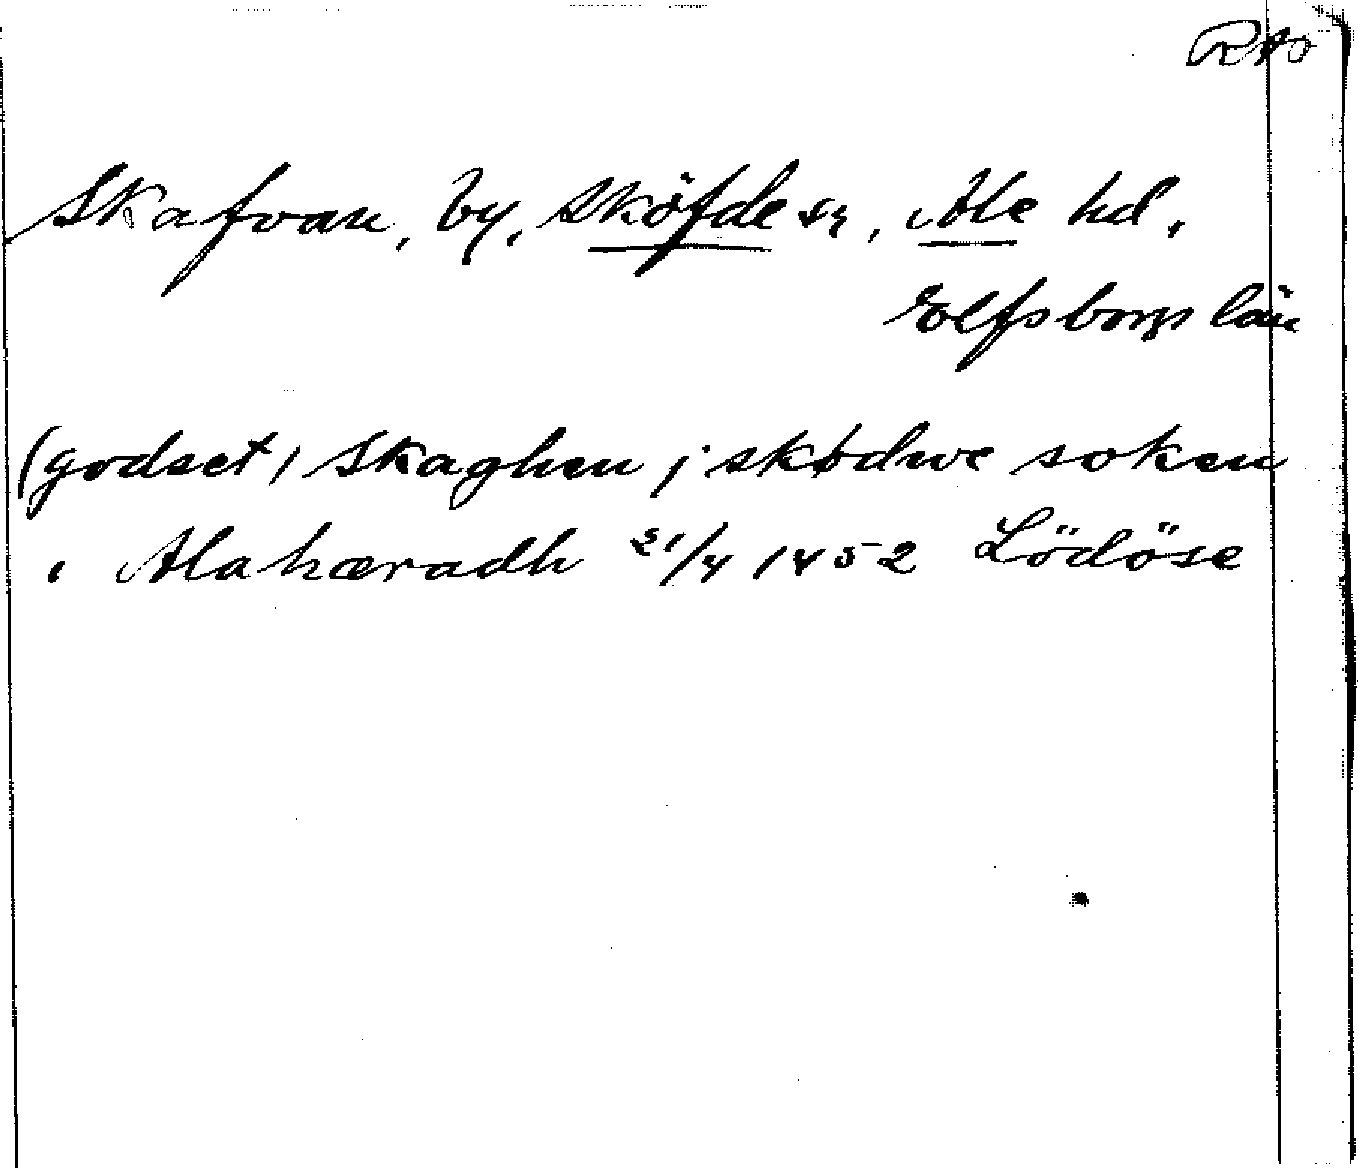 RAO
Skafvan, by, Sköfde sn, Ale hd.
Elfsborgs län
(godset) Skaghen j skødwe soken
i Ala hæradh 21/4 1452 Lödöse